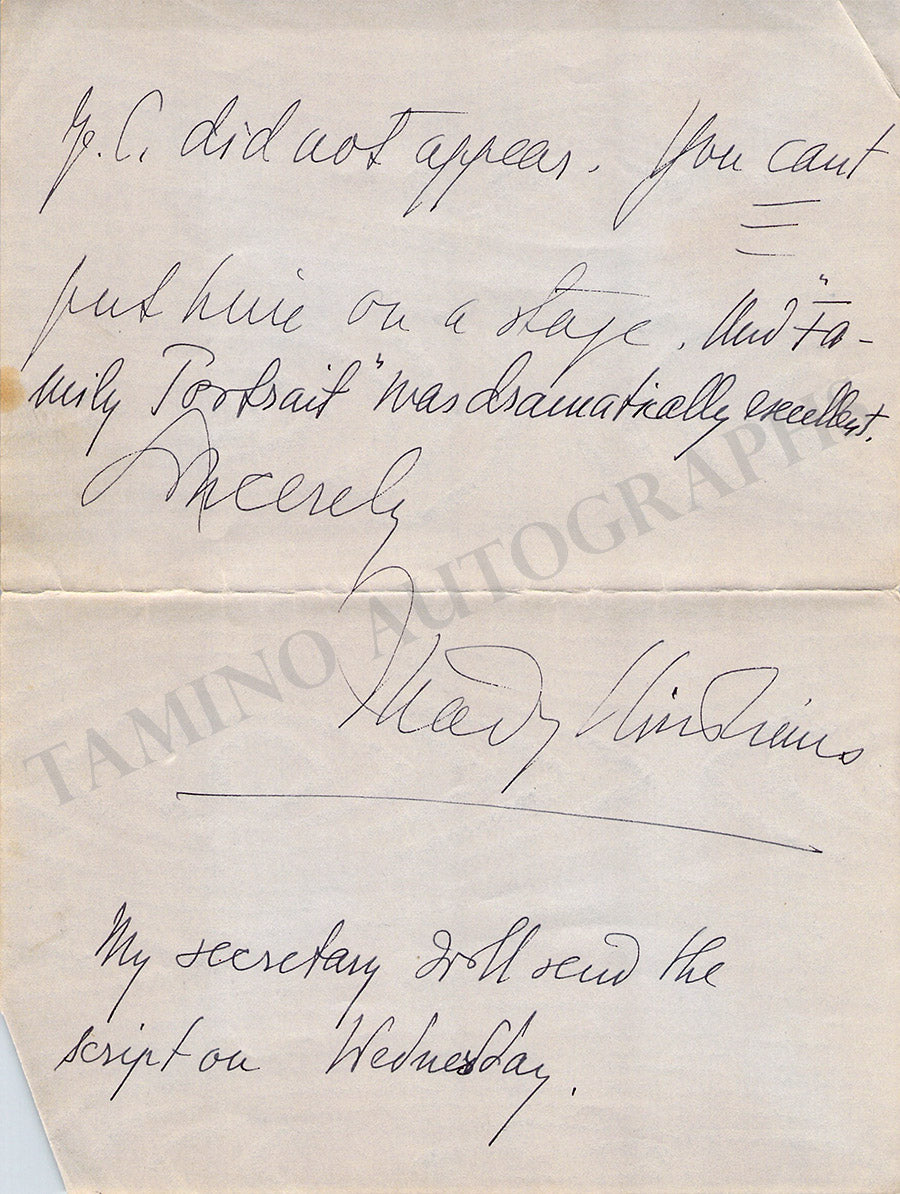 J. C. did not appear. You cant
put him on a stage. And "Fa-
mily Portrait" was dramatically excellent.
Sincerely
Mady Christians
My secretary will send the
script on Wednesday.
TAMINO AUTOGRAPHS